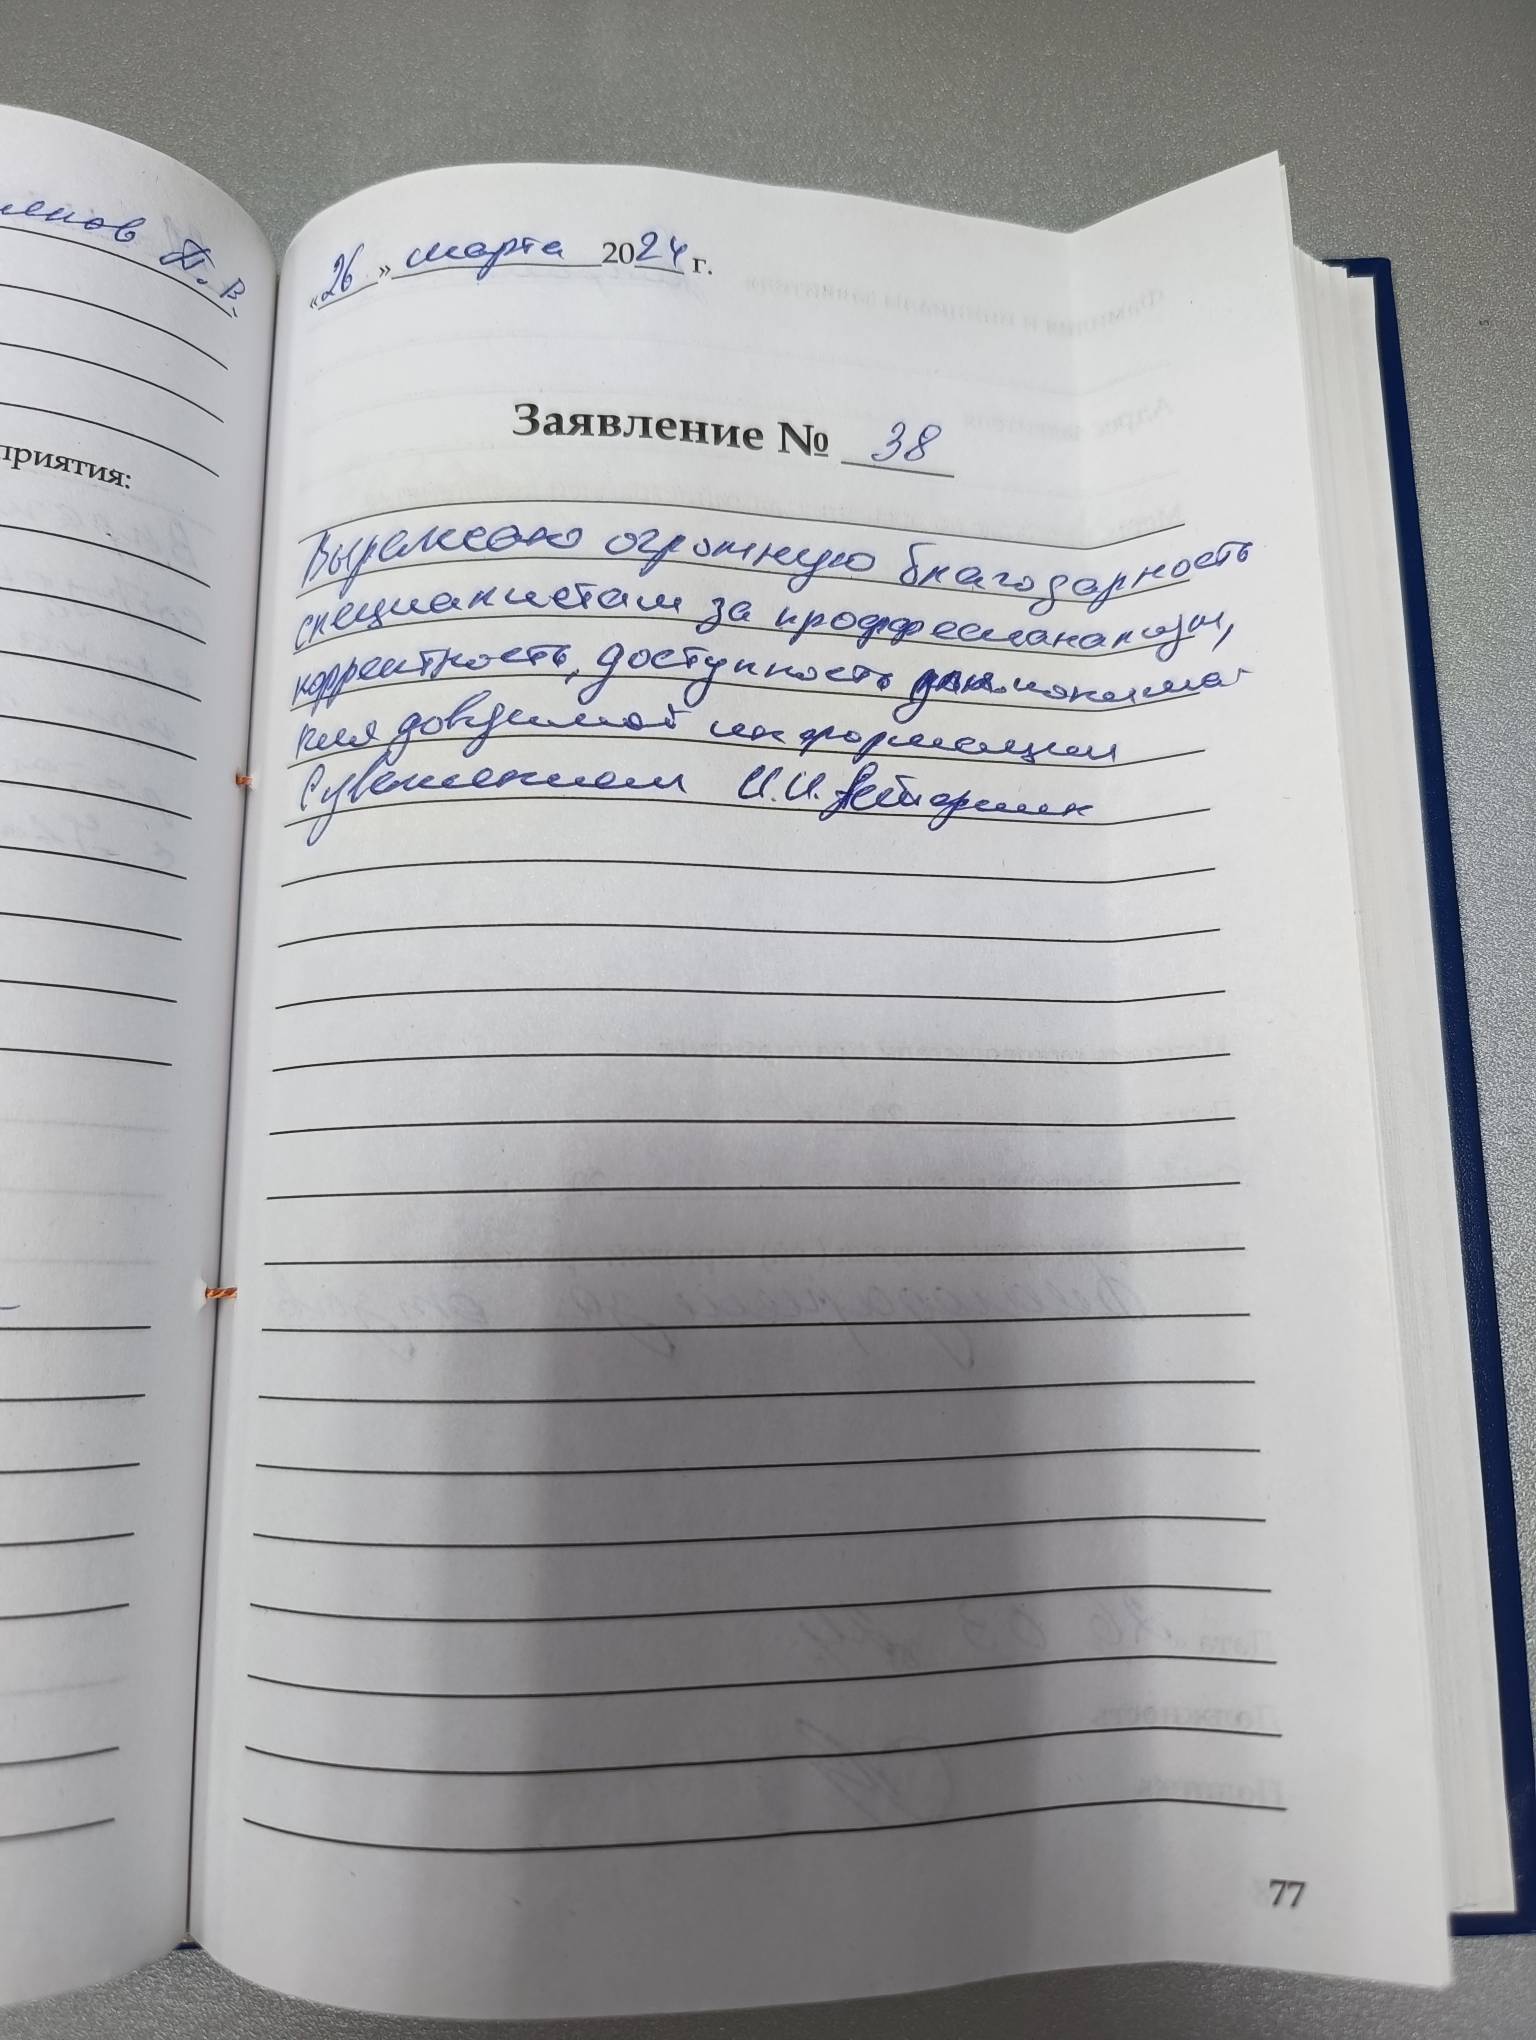 П. В.
приятия:
«26» марта 2024 г.
Заявление № 38
Выражаю огромную благодарность
специалистам за проффесианализм,
корректность, доступность для понима
ния довадимой информации
С уважением И.И.
77